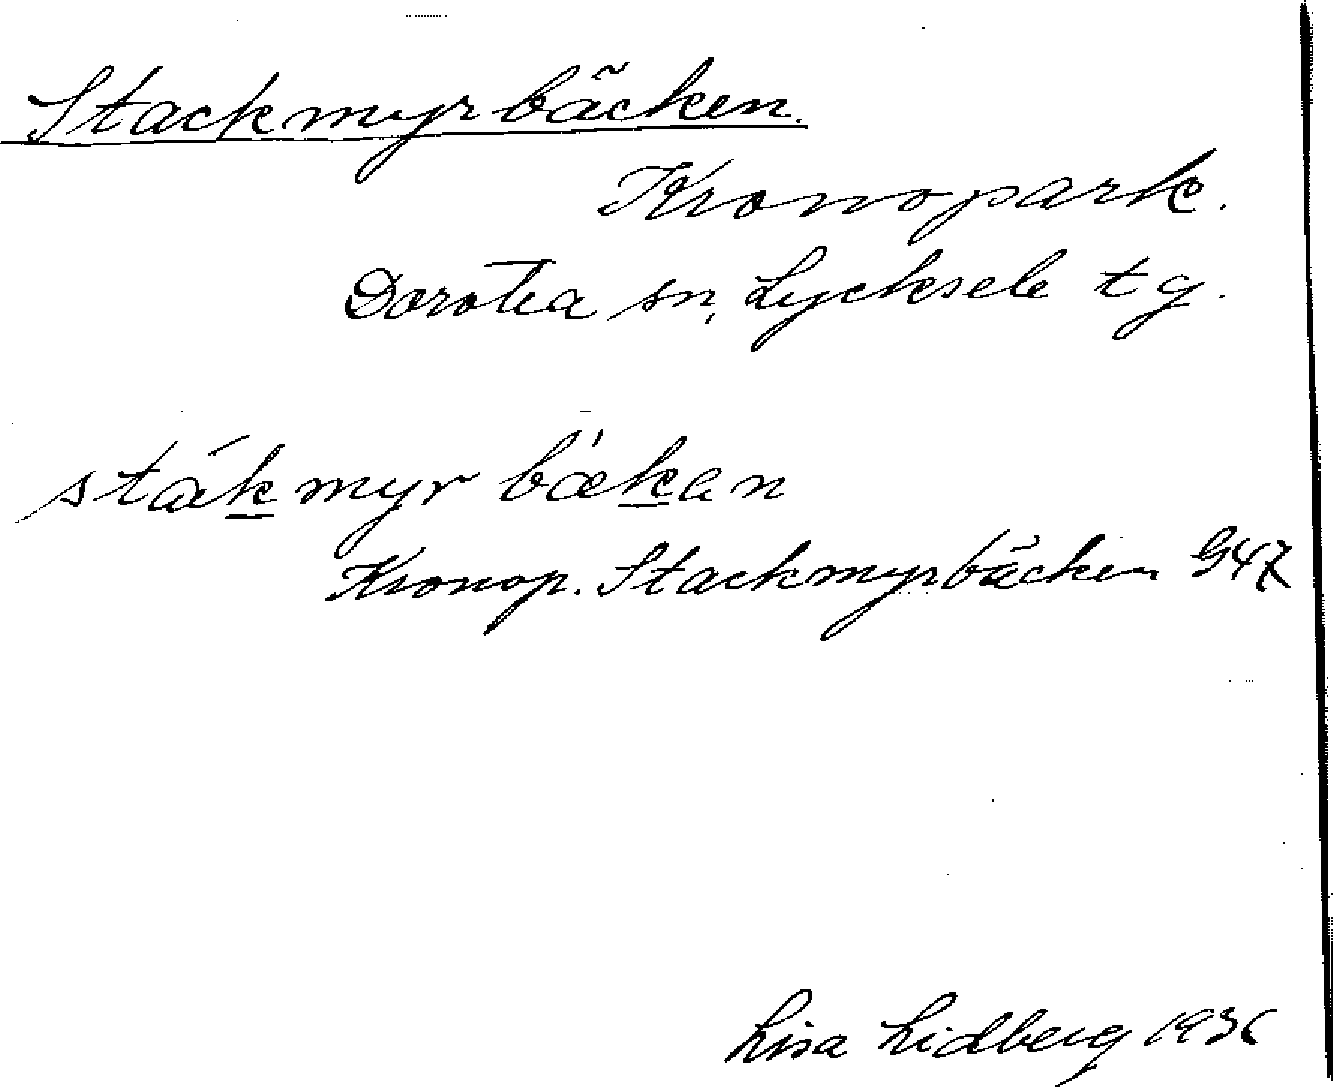 Stackmyrbäcken.
Kronopark.
Dorotea sn, Lycksele tg.
stákmyr bækan
Kronop. Stackmyrbäcken G47
Lisa Lidberg 1936